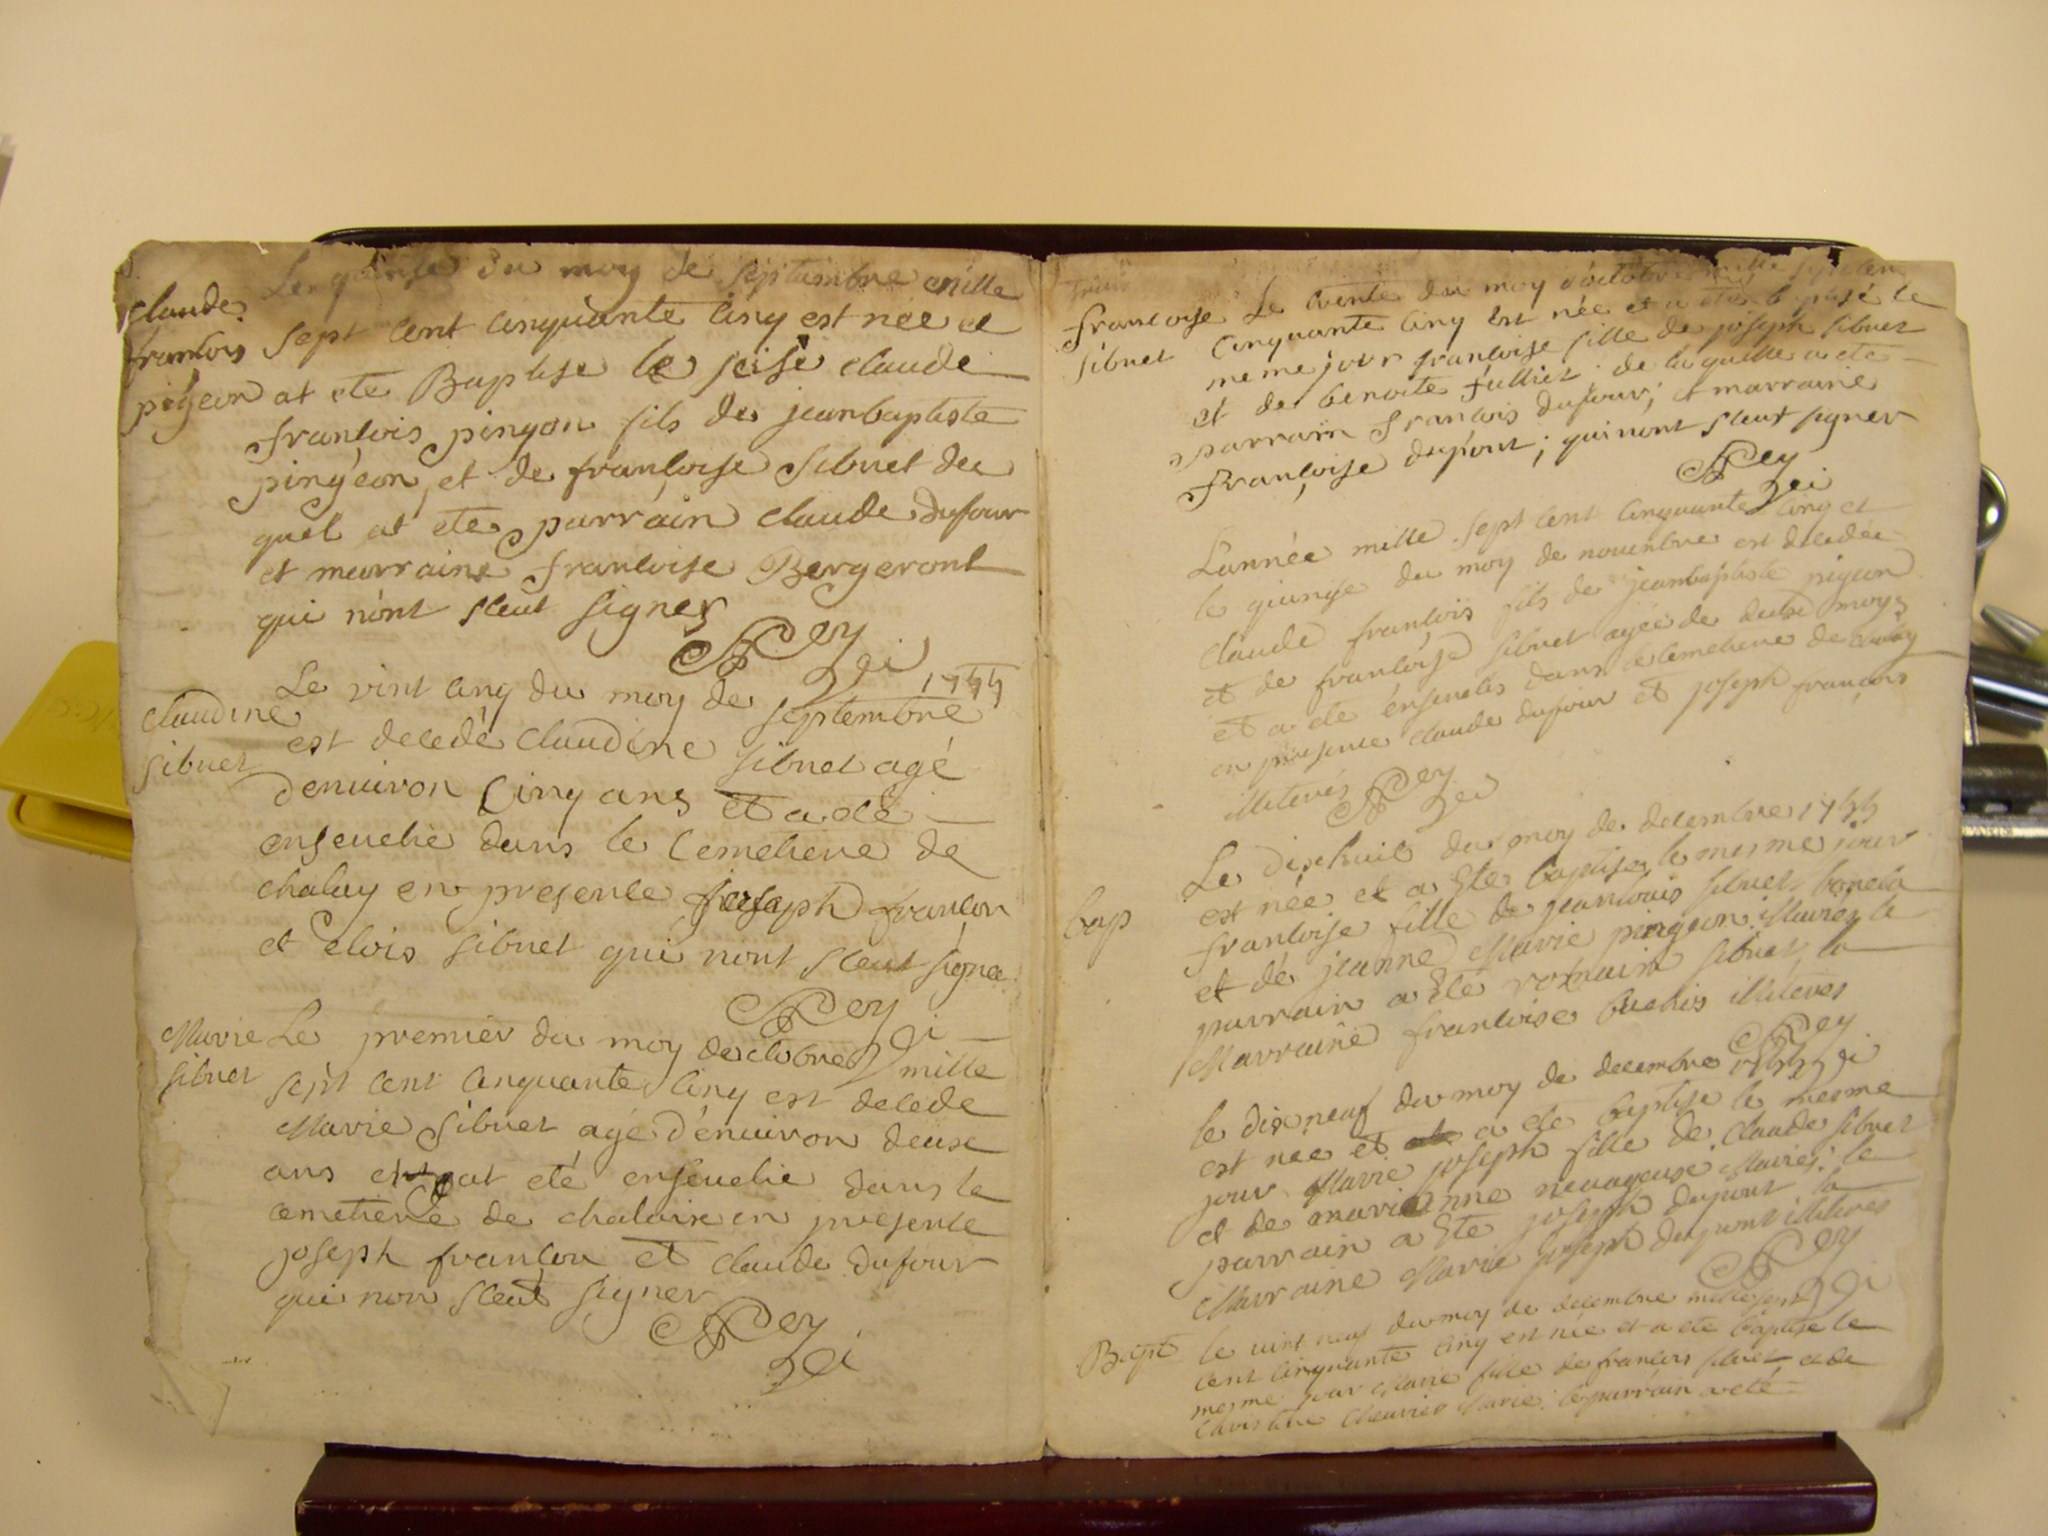 Le quinse du moy de septambre mille
claude
francois sept cent cinquante cinq est nee et
pigeon at ete Baptise le seise claude
francois pingon fils de jeanbaptiste
pingeon et de francoise sibuet du
quel at ete parrain claude dufour
et marraine francoise Bergeront
qui n'ont sceut signer
Rey
Le vint cinq du moy de septembre 1755
claudine
sibuet est decedé claudine sibuet agé
denuiron Cinq ans et a eté
enseuelie dans le Cemetiere de
chaluy en presence joseph francon
et elois sibuet qui nont sceut signee
Rey
Marie Le premier du moy doctobre mille
sibuet sept cent cinquante cinq est decede
Marie sibuet agé d'enuiron deux
ans et at eté enseuelie dans le
cemetiere de chaloix en presente
joseph francon et claude dufour
qui non sceut signer
Rey
francoise Le trente du moy d'octobre mille sept cen
sibuet Cinquante Cinq est née et a eté baptisé le
meme jour francoise fille de joseph sibuet
et de benoite . de la quelle a ete
parrain francois dufour, et marraine
françoise dupont ; qui nont sceut signer
Rey
L'année mille sept cent cinquante cinq et
le quinse du moy de nouenbre est decedée
claude francois fils de jeanbaptiste pigeon
et de francoise sibuet agée de deux moys
et a eté enseuelis dans le cemetiere de
en presence claude dufour et joseph françois
illiterés Rey
Le dixhuit du moy de decembre 1755
bap est née et a Ete baptisee le mesme jour
francoise fille de jeanlouis sibuet
et de jeanne Marie pingeon Mariés le
parrain a Ete romain sibuet la
Marraine francoise illiteres
Rey
le dix neuf du moy de decembre 1755
est née et a ete baptise le mesme
jour Marie joseph fille de Claude sibuet
et de marie anne Mariés le
parrain a Ete joseph dupont la
Marraine Marie joseph dupont illiteres
Rey
Bapt le uint neuf du moy de decembre mille sept
cent cinquante cinq est née et a ete baptise le
mesme jour Marie fille de francois sibuet et de
Marie le parrain a eté